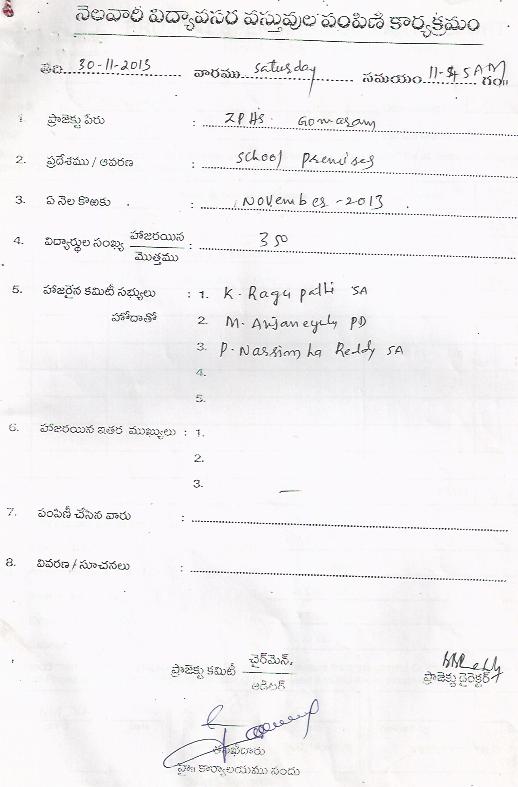 నెలవారి విద్యావసర వస్తువుల పంపిణి కార్యక్రమం
తేది 30-11-2013 వారము saturday సమయం 11-45 AM గం॥
1. ప్రాజెక్టు పేరు : ZPHS. Gomaram
2. ప్రదేశము / ఆవరణ : school premises
3. ఏ నెల కొఱకు : November-2013
4. విద్యార్థుల సంఖ్య హాజరయిన : 350
మొత్తము
5. హాజరైన కమిటీ సభ్యులు : 1. K. Ragupathi SA
హోదాతో 2. M. Anjaneyulu PD
3. P. Narsimha Reddy SA
4.
5.
6. హాజరయిన ఇతర ముఖ్యులు : 1.
2.
3. —
7. పంపిణీ చేసిన వారు :
8. వివరణ / సూచనలు :
ప్రాజెక్టు కమిటీ చైర్‌మెన్.
ఆడిటర్
ప్రాజెక్టు డైరెక్టర్
కార్యాలయము నందు